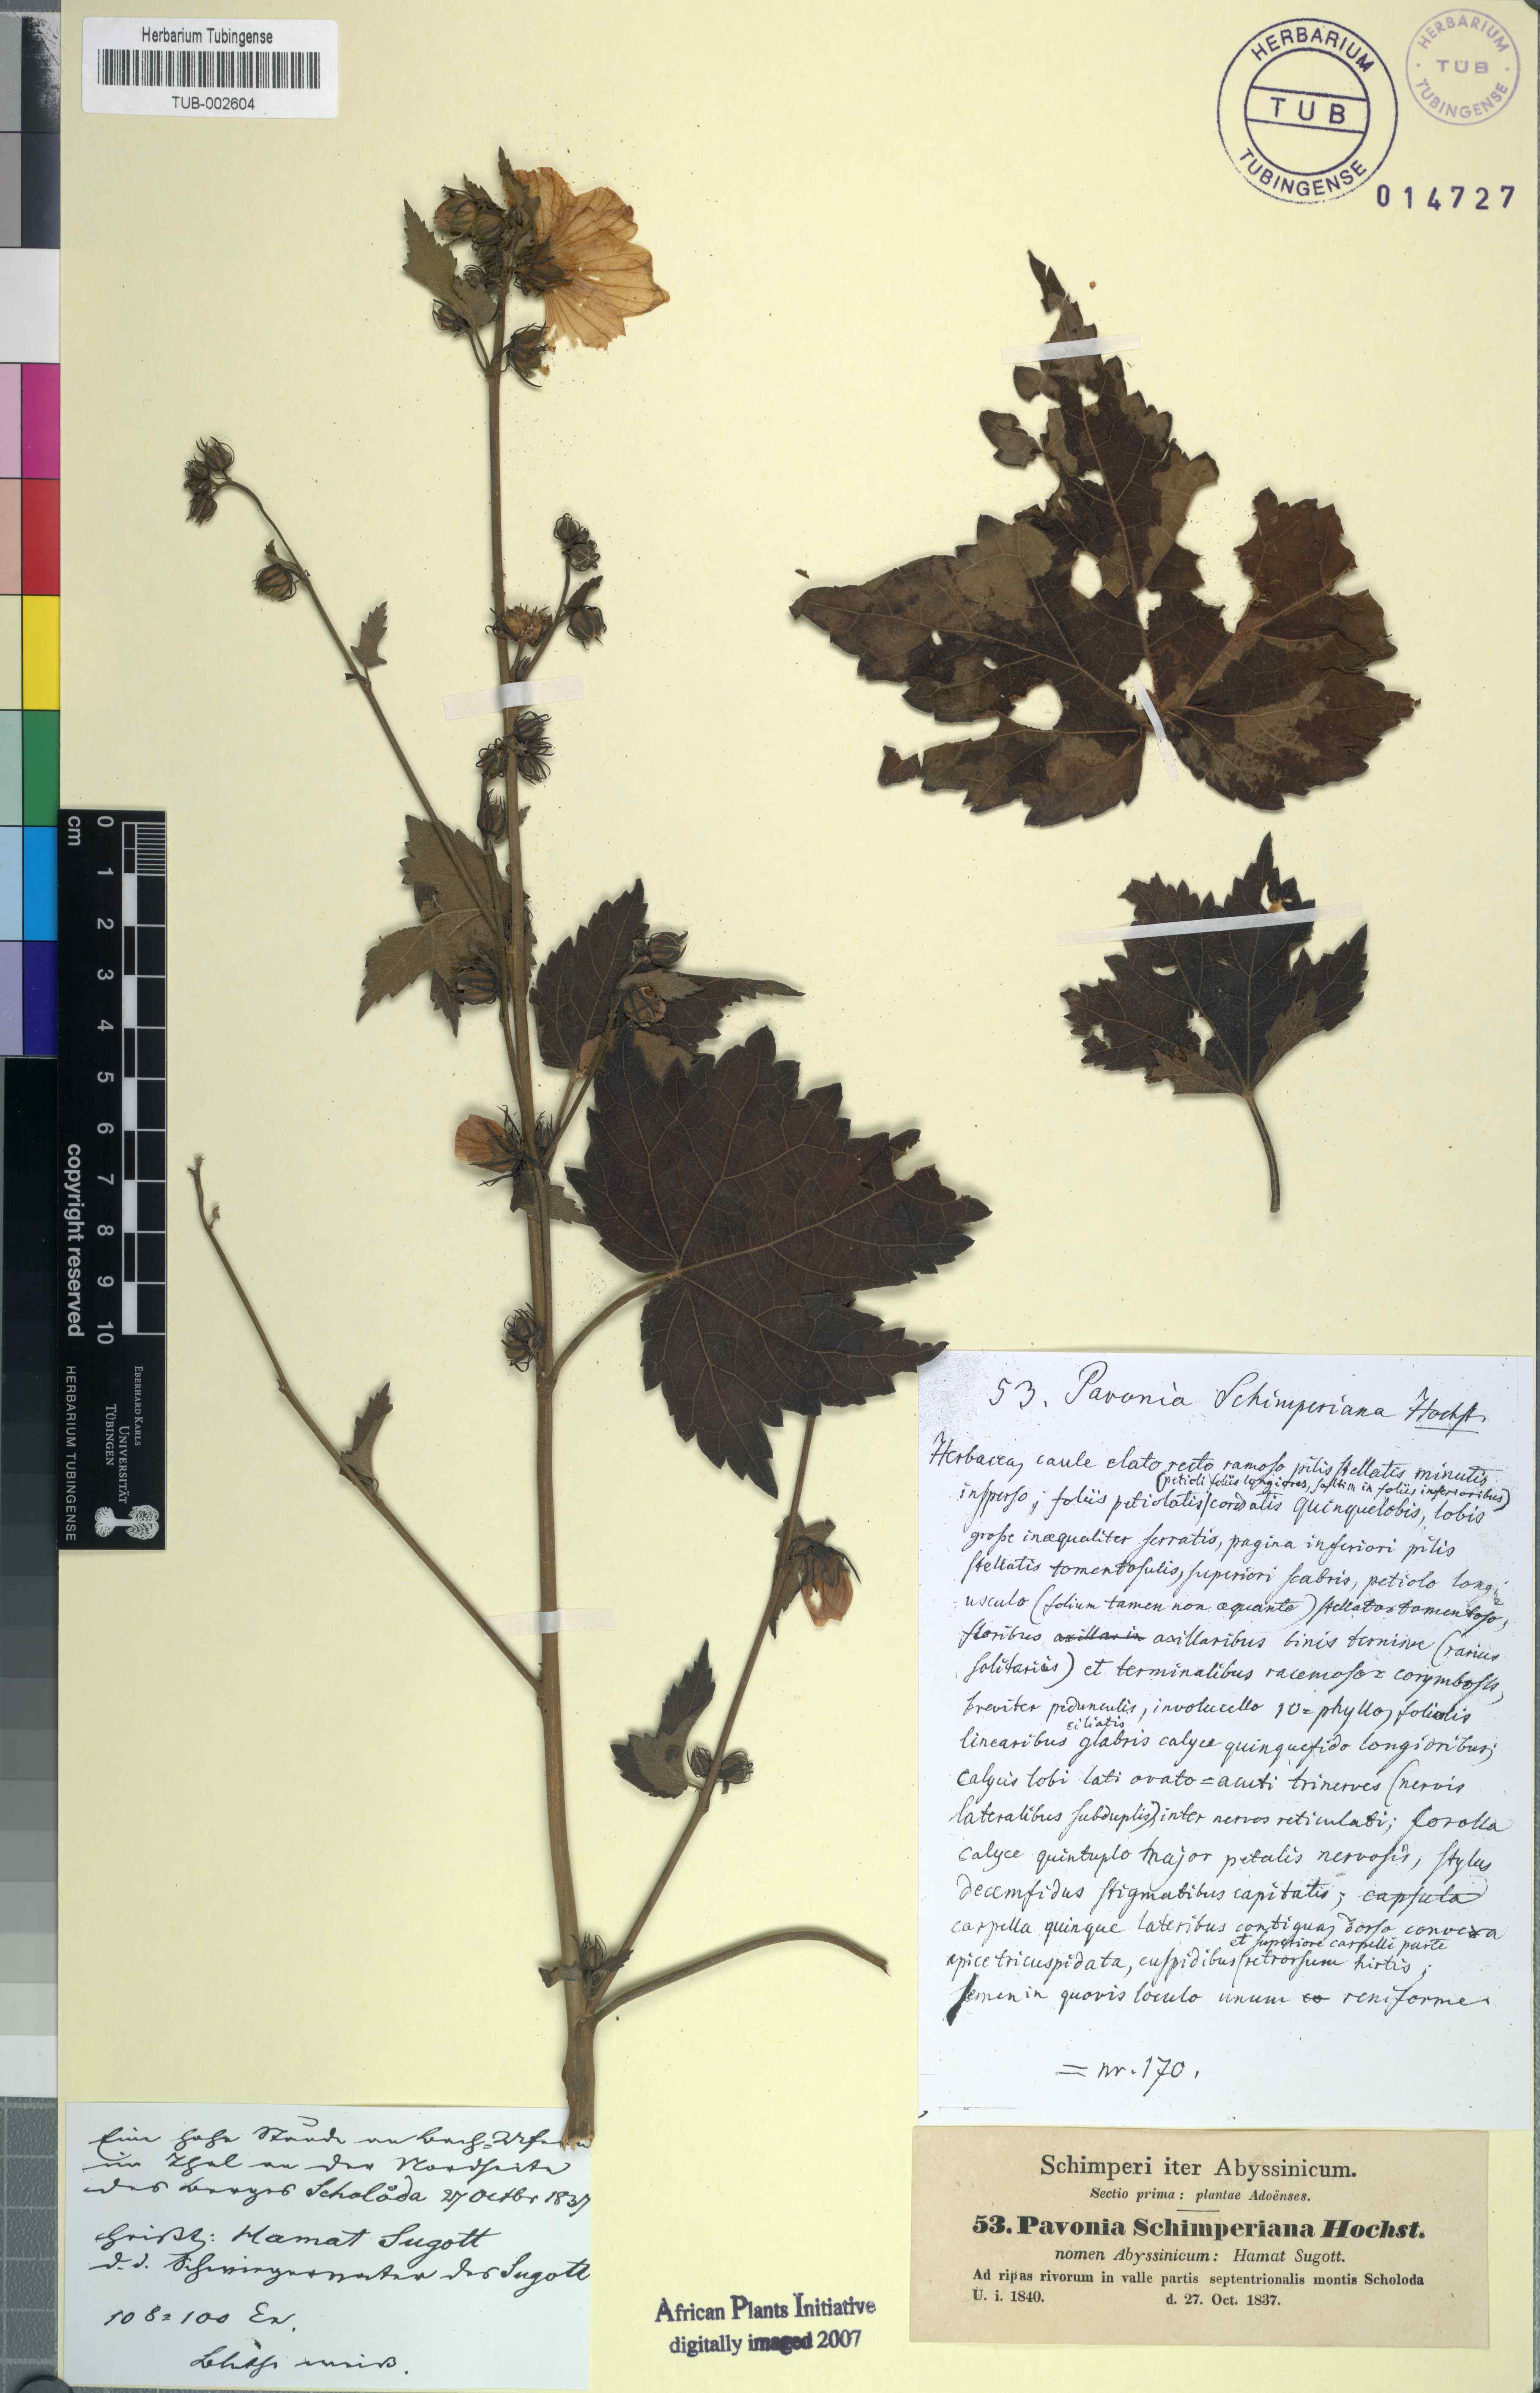 Herbarium Tubingense
TUB-002604
HERBARIUM
TUB
TUBINGENSE
HERBARIUM
TUB
TUBINGENSE
014727
cm 0 1 2 3 4 5 6 7 8 9 10
copyright reserved
HERBARIUM TUBINGENSE
EBERHARD KARLS
UNIVERSITÄT
TÜBINGEN
53. Pavonia Schimperiana Hochst.
Herbacea, caule elato recto ramoso pilis stellatis minutis
(petioli foliis longiores, saltim in foliis inferioribus)
insperso; foliis petiolatis cordatis quinquelobis, lobis
grosse inaequaliter serratis, pagina inferiori pilis
stellatis tomentosulis, superiori scabris, petiolo longi
usculo (folium tamen non aequante) stellato tomentoso,
floribus axillarin axillaribus binis ternisve (rarius
solitariis) et terminalibus racemoso = corymbosis,
breviter pedunculis, involucello 10 = phyllo, foliolis
ciliatis
linearibus glabris calyce quinquefido longioribus;
calycis lobi lati ovato = acuti trinerves (nervis
lateralibus subduplis) inter nervos reticulati; Corolla
calyce quintuplo major petalis nervosis, stylus
decemfidus stigmatibus capitatis; capsula
carpella quinque lateribus contigua, dorso convexa
et superiore carpelli parte
apice tricuspidata, cuspidibus (retrorsum hirtis;
semen in quovis loculo unum co reniforme.
= nr. 170.
Eine hohe Staude an Bach=Ufern
im Thal an der Nordseite
des Berges Scholåda 27 Octbr 1837
heißt: Hamat Sugott
d. i. Schwiegermutter des Sugott
108 = 100 Ex.
Blüthe weiß.
Schimperi iter Abyssinicum.
Sectio prima: plantae Adoënses.
53. Pavonia Schimperiana Hochst.
nomen Abyssinicum: Hamat Sugott.
Ad ripas rivorum in valle partis septentrionalis montis Scholoda
U. i. 1840. d. 27. Oct. 1837.
African Plants Initiative
digitally imaged 2007